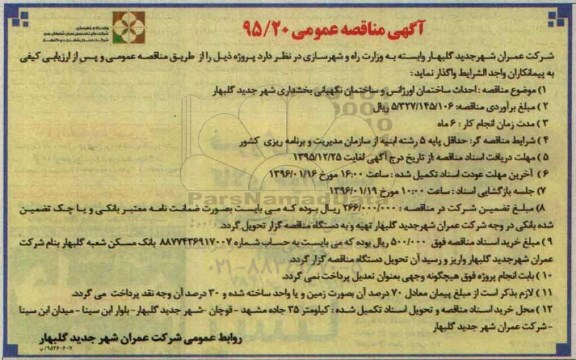 آگهی مناقصه عمومی ۹۵/۲۰
شرکت عمران شهرجدید گلبهار وابسته به وزارت راه و شهرسازی در نظر دارد پروژه ذیل را از طریق مناقصه عمومی و پس از ارزیابی کیفی
به پیمانکاران واجد الشرایط واگذار نماید :
۱) موضوع مناقصه : احداث ساختمان اورژانس و ساختمان نگهبانی بخشداری شهر جدید گلبهار
۲) مبلغ برآوردی مناقصه: ۵/۳۲۷/۱۴۵/۱۰۶ ریال
۳) مدت زمان انجام کار : ۶ ماه
۴) شرایط مناقصه گر: حداقل پایه ۵ رشته ابنیه از سازمان مدیریت و برنامه ریزی کشور
۵) مهلت دریافت اسناد مناقصه :از تاریخ درج آگهی لغایت ۱۳۹۵/۱۲/۲۵
۶) آخرین مهلت عودت اسناد تکمیل شده : ساعت ۱۶:۰۰ مورخ ۱۳۹۶/۰۱/۱۶
۷) جلسه بازگشایی اسناد : ساعت ۱۰:۰۰ مورخ ۱۳۹۶/۰۱/۱۹
۸) مبلغ تضمین شرکت در مناقصه : ۲۶۶/۰۰۰/۰۰۰ ریال بوده که می بایست بصورت ضمانت نامه معتبر بانکی و یا چک تضمین
شده بانکی در وجه شرکت عمران شهرجدید گلبهار تهیه و به دستگاه مناقصه گزار تحویل گردد.
۹) مبلغ خرید اسناد مناقصه فوق ۵۰۰/۰۰۰ ریال بوده که می بایست به حساب شماره ۸۸۷۷۴۳۶۹۱۷۰۰۷ بانک مسکن شعبه گلبهار بنام شرکت
عمران شهرجدید گلبهار واریز و رسید آن تحویل دستگاه مناقصه گزار گردد.
۱۰) بابت انجام پروژه فوق هیچگونه وجهی بعنوان تعدیل پرداخت نمی گردد.
۱۱) لازم بذکر است از مبلغ پیمان معادل ۷۰ درصد آن بصورت زمین و یا واحد ساخته شده و ۳۰ درصد آن وجه نقد پرداخت می گردد.
۱۲) محل خرید اسناد مناقصه و تحویل اسناد تکمیل شده : کیلومتر ۳۵ جاده مشهد - قوچان -شهر جدید گلبهار- بلوار ابن سینا - میدان ابن سینا
-شرکت عمران شهر جدید گلبهار
روابط عمومی شرکت عمران شهر جدید گلبهار